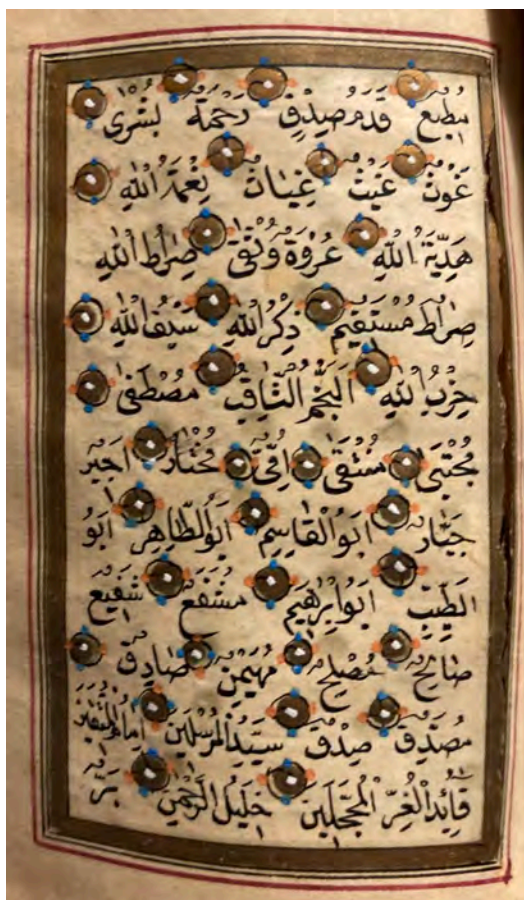 مطيع قدم صدق رحمة بشرى
غوث غيث غياث نعمة الله
هدية الله عروة وثقى صراط الله
صراط مستقيم ذكر الله سيف الله
حزب الله النجم الثاقب مصطفى
مجتبى منتقى امي مختار اجير
جبار ابو القاسم ابو الطاهر ابو
الطيب ابو ابرهيم مشفع شفيع
صالح مصلح مهيمن صادق
مصدق صدق سيد المرسلين امام المتقين
قائد الغر المحجلين خليل الرحمن بر